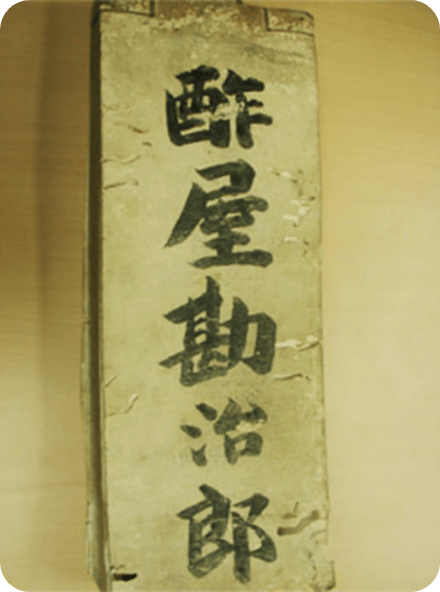 酢屋勘治郎